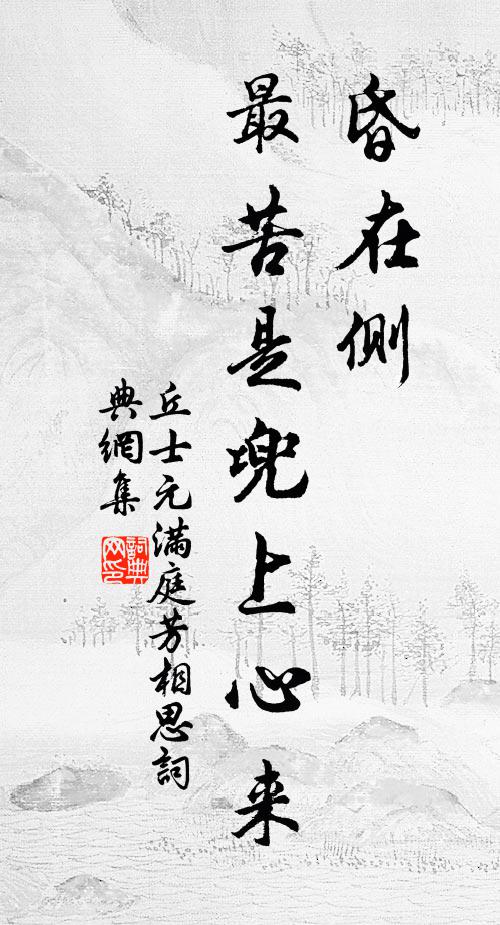 昏在側
最苦是兜上心来
丘士元滿庭芳相思詞
典網集
詞典網印